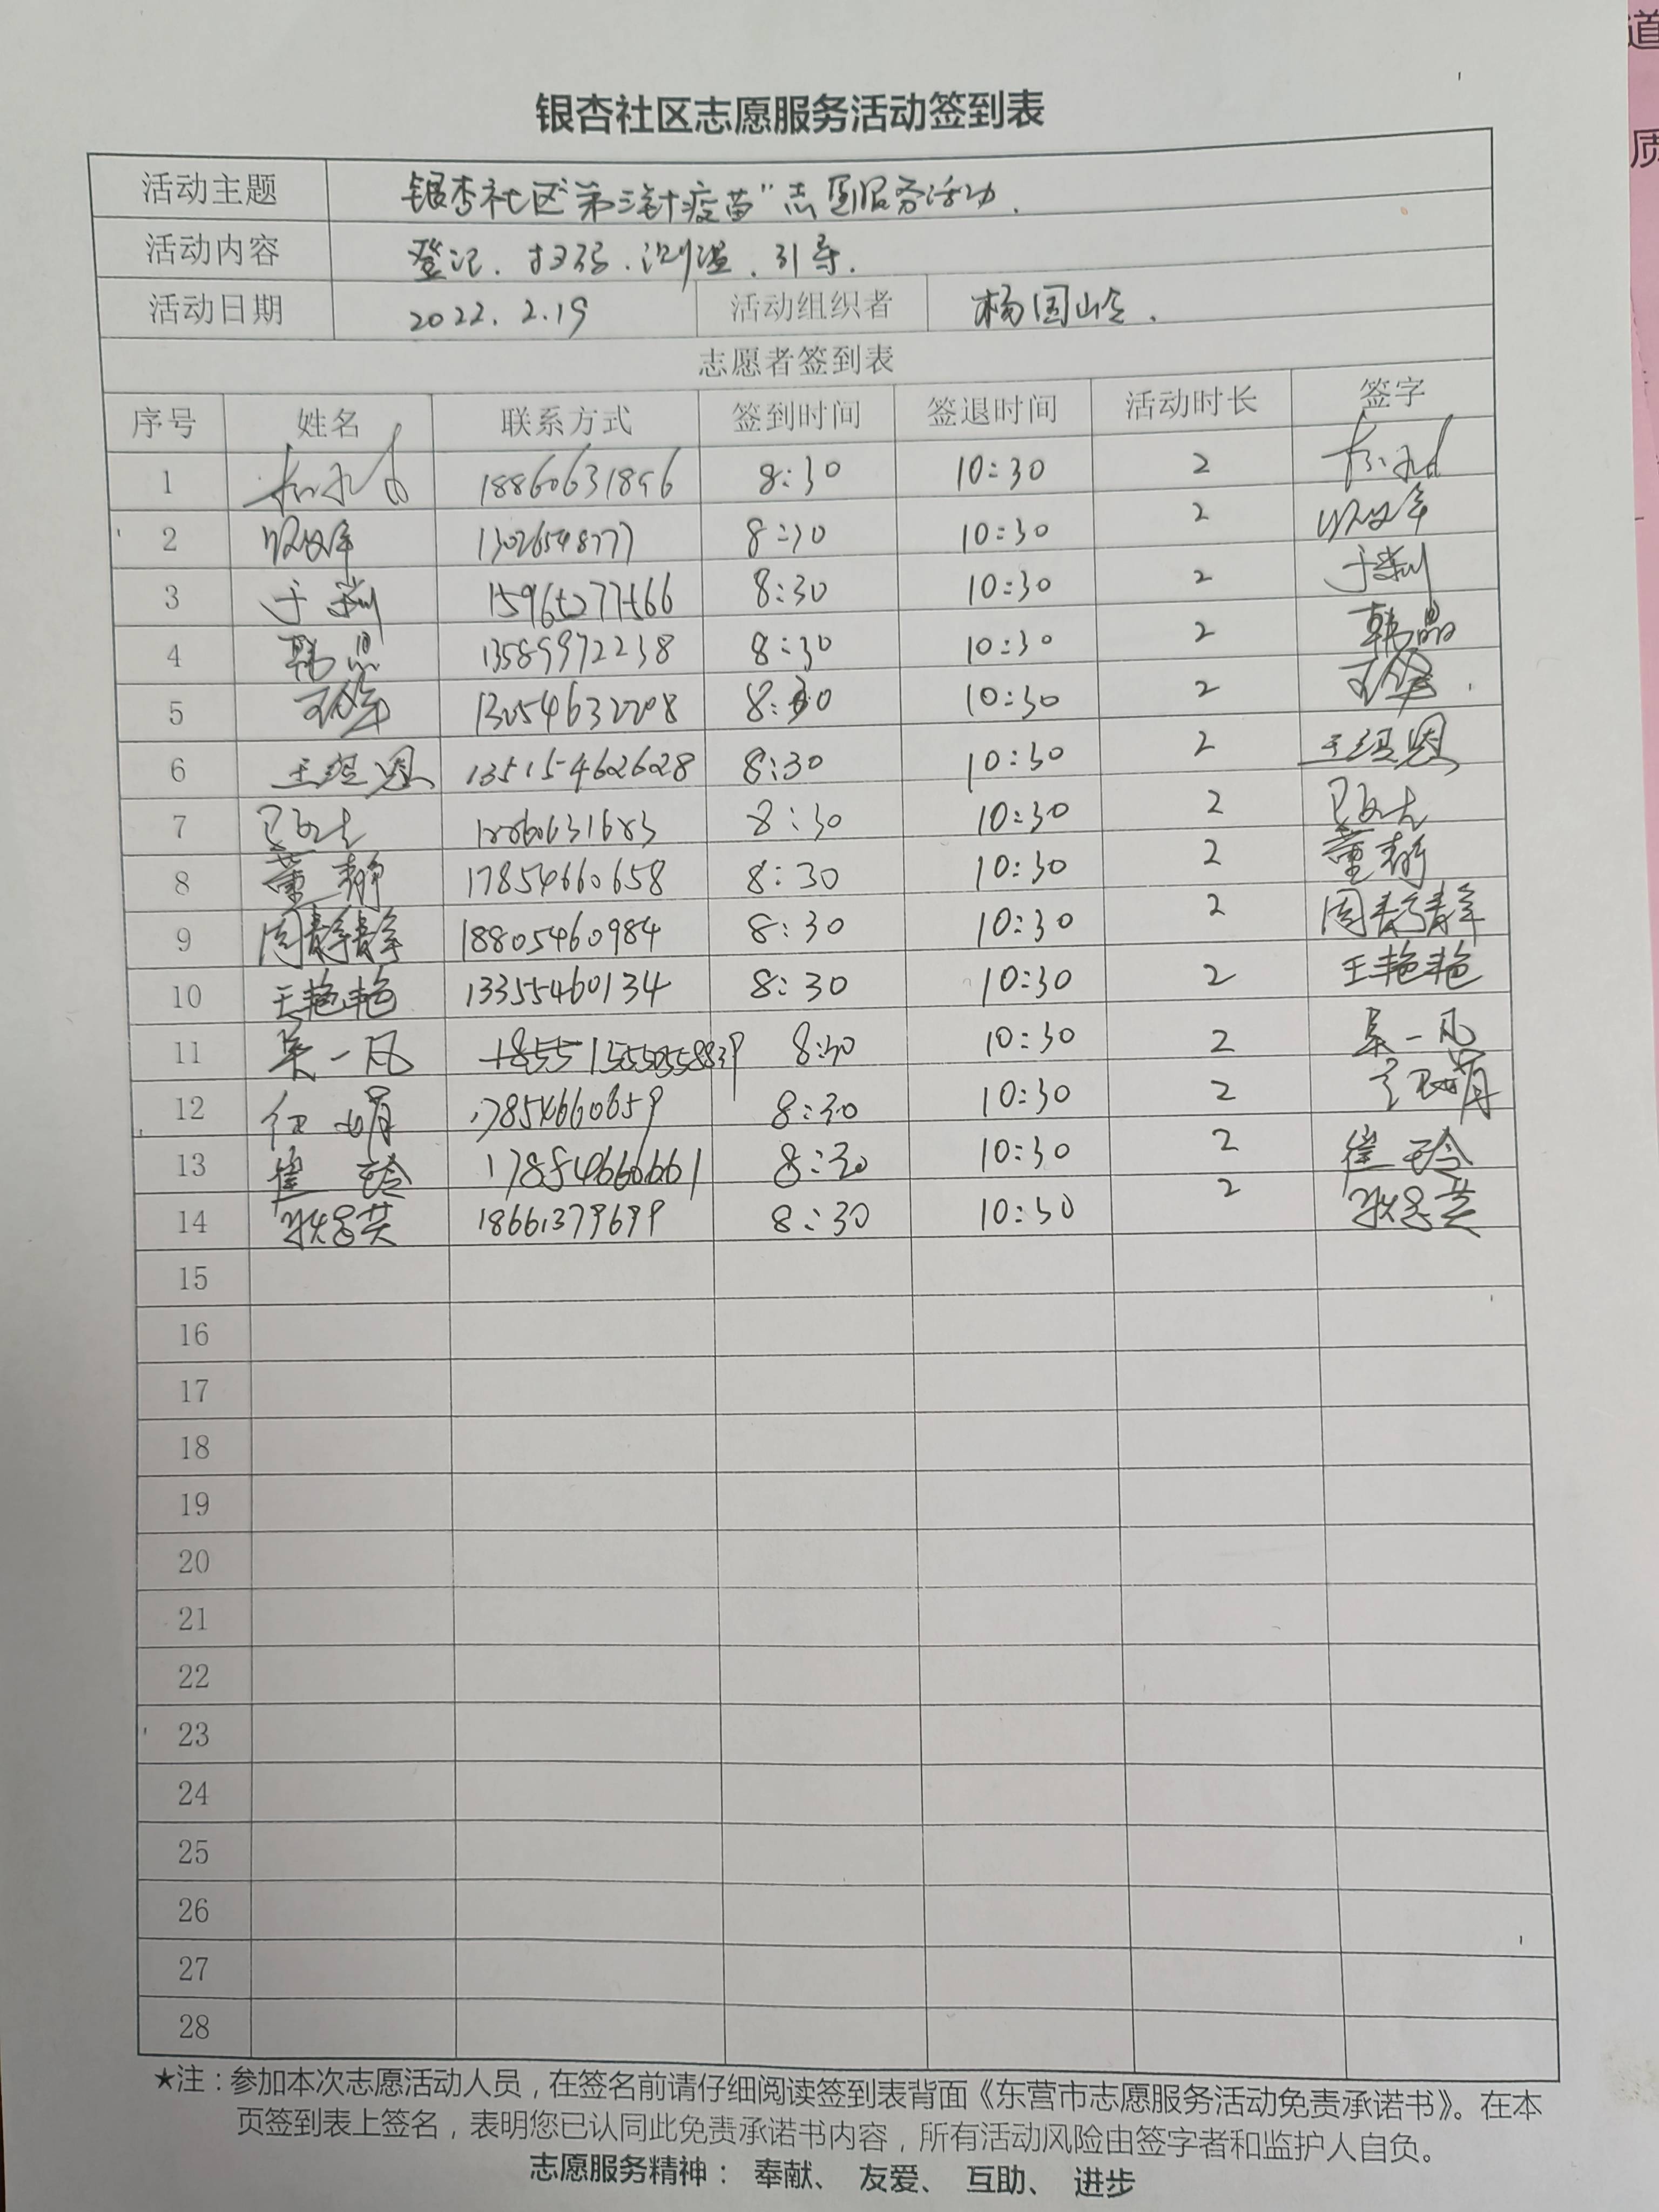 道
质
银杏社区志愿服务活动签到表
活动主题 银杏社区"第三针疫苗"志愿服务活动.
活动内容 登记、扫码、测温、引导.
活动日期 2022.2.19 活动组织者 杨国山
志愿者签到表
序号 姓名 联系方式 签到时间 签退时间 活动时长 签字
1 18860631896 8:30 10:30 2
2 13026548777 8:30 10:30 2
3 于 8:30 10:30 2 于
4 韩晶 13589972238 8:30 10:30 2 韩晶
5 13054632208 8:30 10:30 2
6 王 恩 13515462628 8:30 10:30 2 王 恩
7 8:30 10:30 2
8 董静 17854660658 8:30 10:30 2 董静
9 周静静 18805460984 8:30 10:30 2 周静静
10 王艳艳 13355460134 8:30 10:30 2 王艳艳
11 吴一凡 8:30 10:30 2 吴一凡
12 娟 17854660659 8:30 10:30 2 娟
13 崔玲 17854660661 8:30 10:30 2 崔玲
14 18661379699 8:30 10:30 2
15
16
17
18
19
20
21
22
23
24
25
26
27
28
★注：参加本次志愿活动人员，在签名前请仔细阅读签到表背面《东营市志愿服务活动免责承诺书》。在本
页签到表上签名，表明您已认同此免责承诺书内容，所有活动风险由签字者和监护人自负。
志愿服务精神： 奉献、 友爱、 互助、 进步